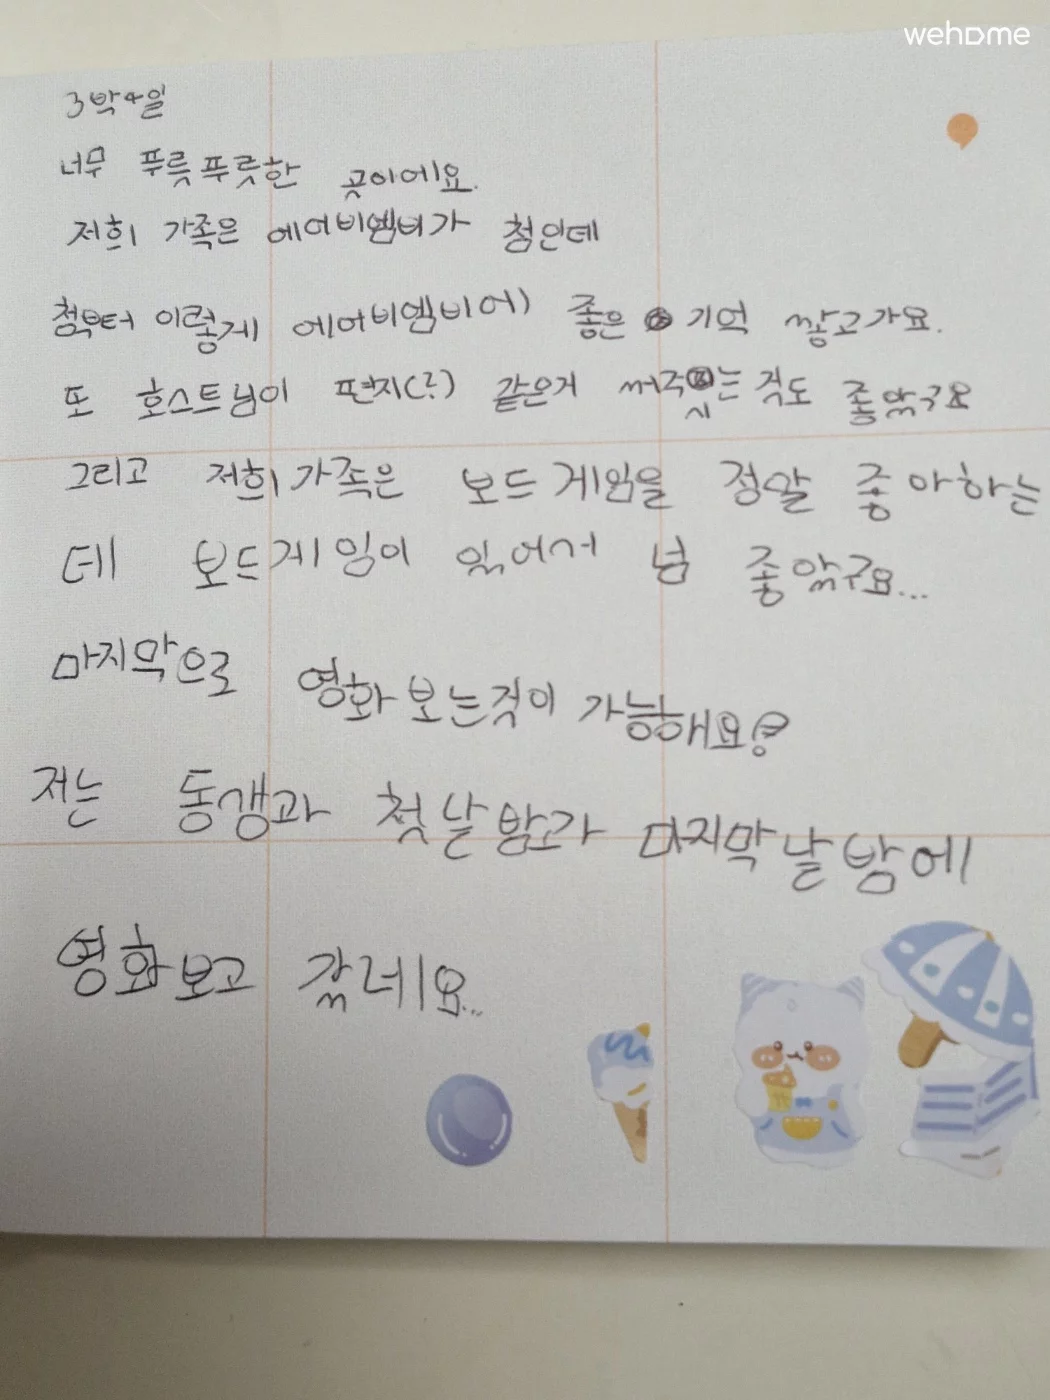 wehome
3박4일
너무 푸릇푸릇한 곳이에요.
저희 가족은 에어비엠비가 첨인데
첨부터 이렇게 에어비엠비에) 좋은 기억 쌓고가요.
또 호스트님이 편지(?) 같은거 써주시는 것도 좋았구요
그리고 저희가족은 보드게임을 정말 좋아하는
데 보드게임이 있어서 넘 좋았구요...
마지막으로 영화 보는것이 가능해요?
저는 동생과 첫날밤과 마지막날밤에
영화보고 갔네요...